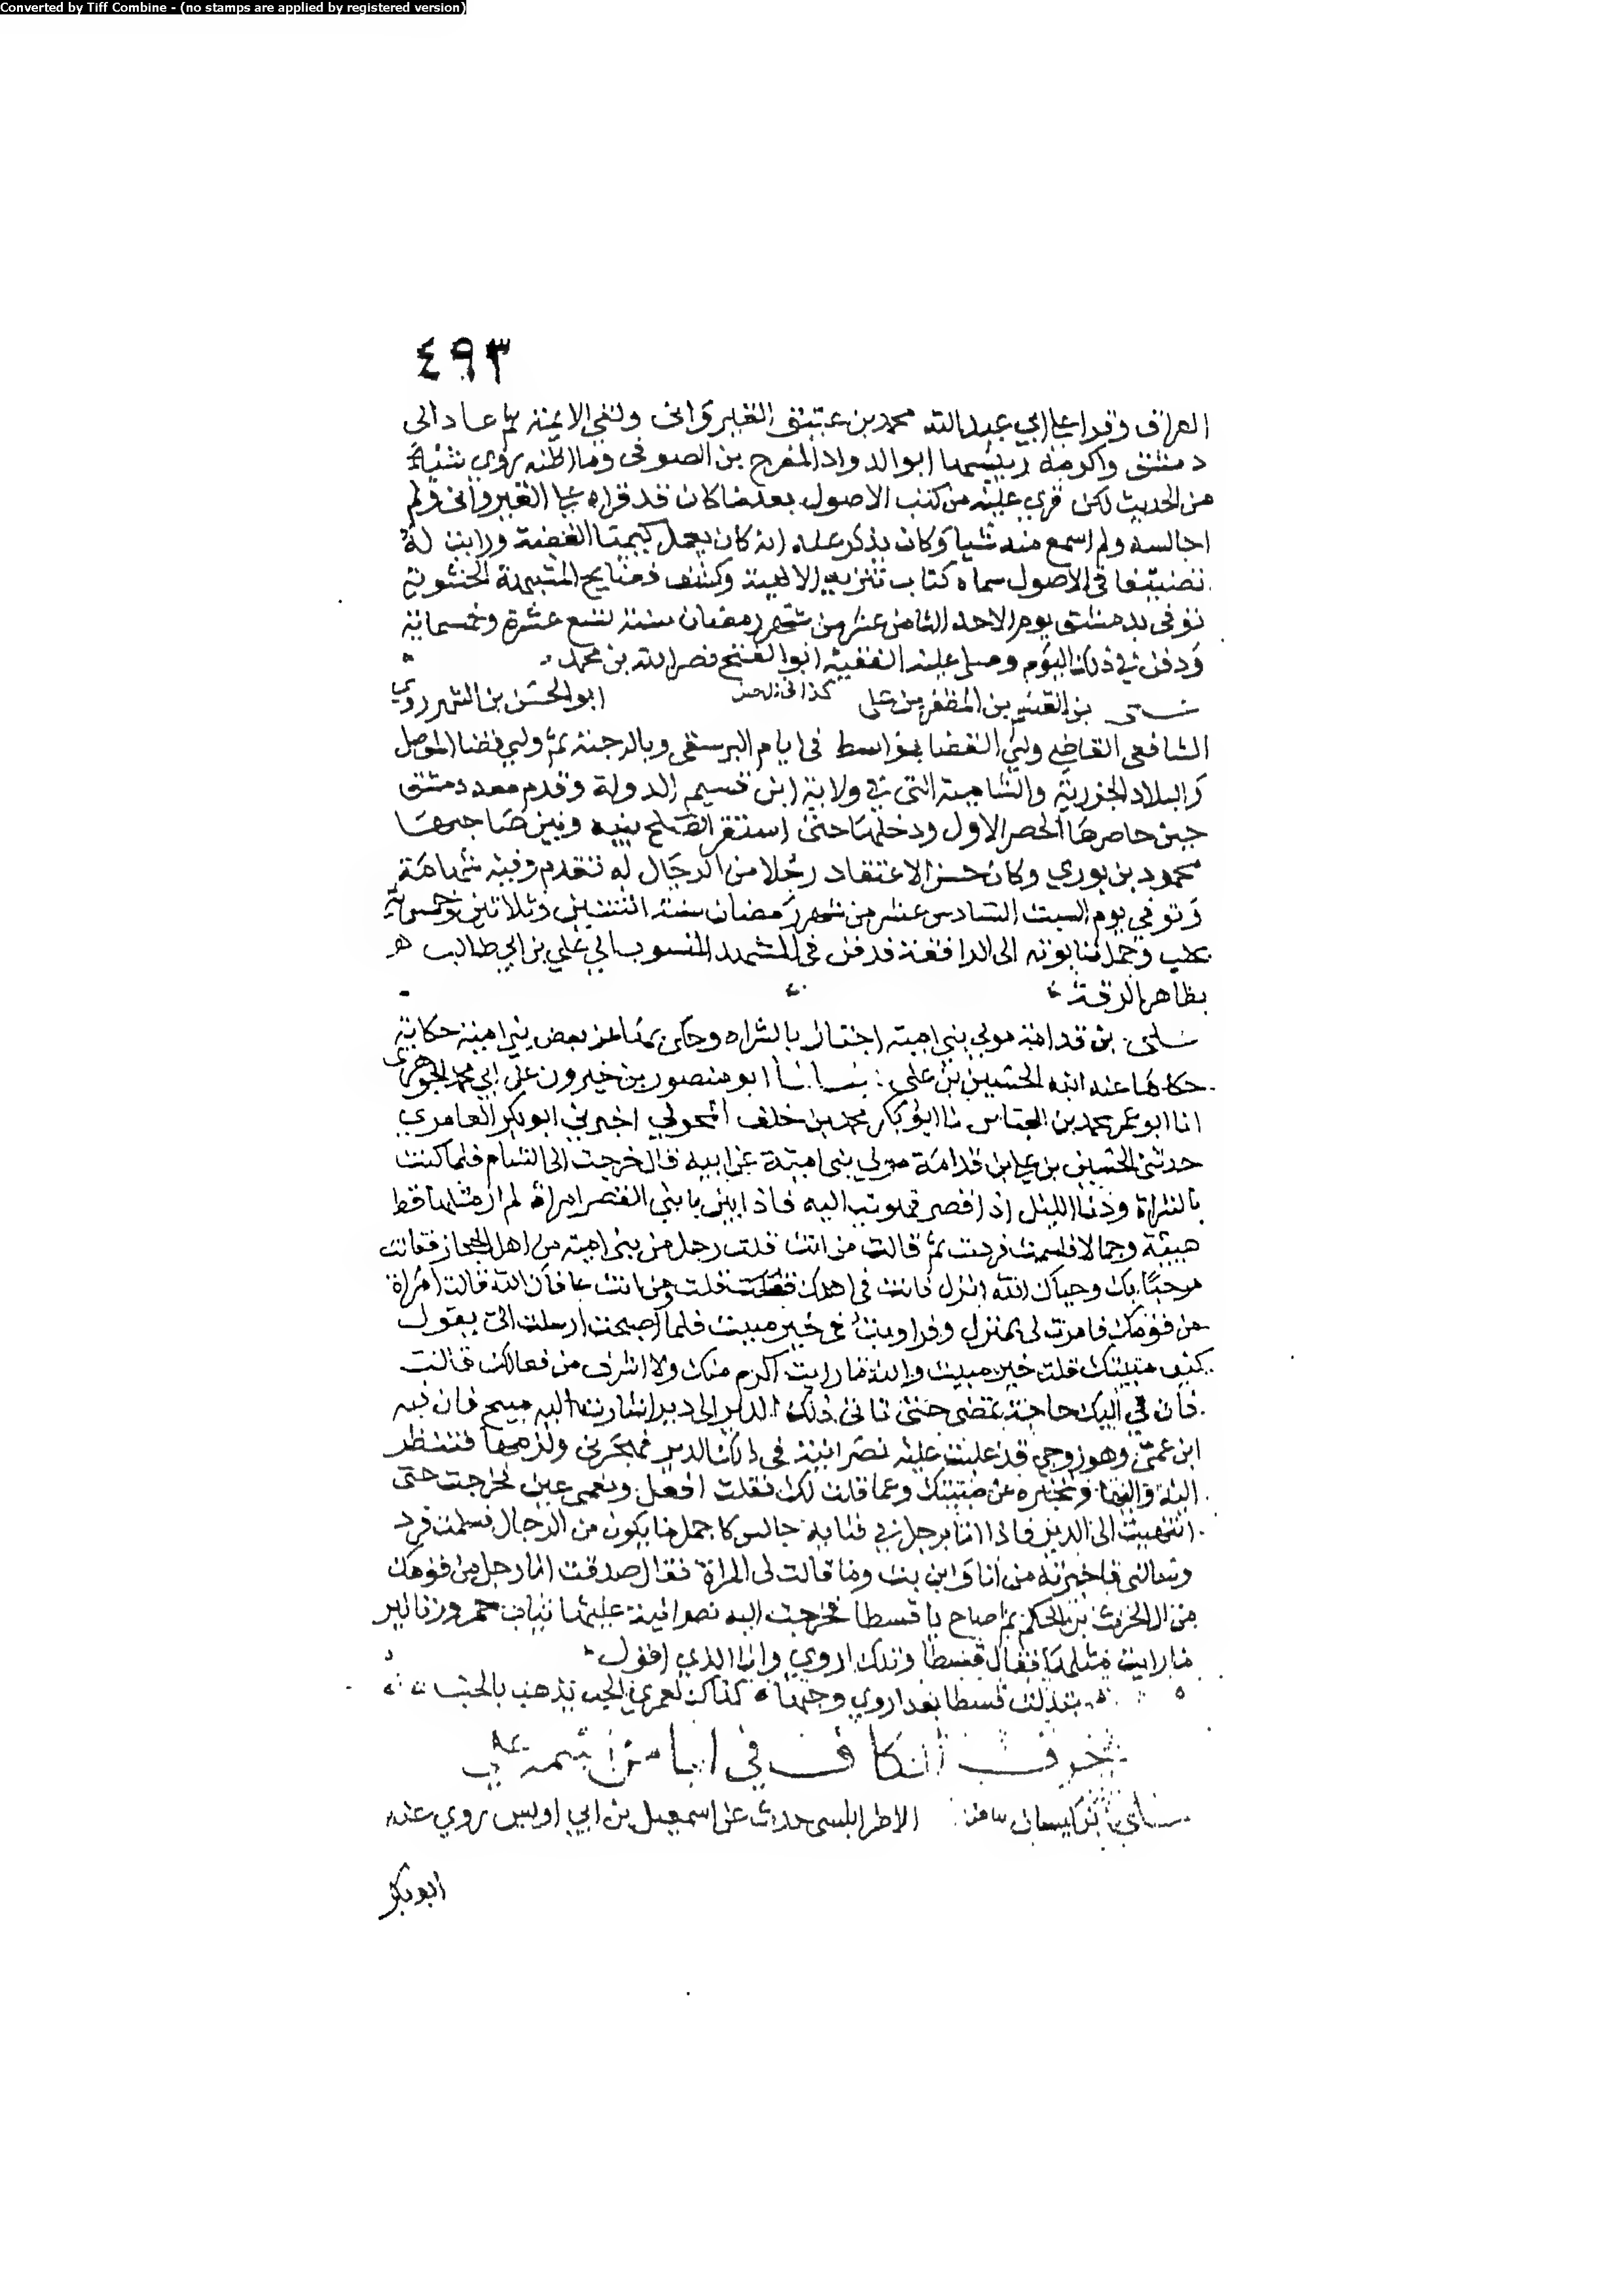 Converted by Tiff Combine - (no stamps are applied by registered version)
٤٩٣
العراق وقرا علي ابي عبد الله محمد بن عتيق القيرواني ولقي الايمة ثم عاد الى
دمشق واكرمه رييسها ابو الدواد المفرج بن الصوفي وما اظنه روي شيئا
من الحديث لكن قري عليه من كتب الاصول بعد ما كان قد قراه علي القيرواني ولم
اجالسه ولم اسمع منه شيا وكان يذكر عنه انه كان يعمل كيميا الفضة ورايت له
تصنيفا في الاصول سماه كتاب تنزيه الالهية وكشف فضايح المشبهة الحشوية
توفي بدمشق يوم الاحد الثامن عشر من شهر رمضان سنة تسع عشرة وخمسماية
ودفن في ذلك اليوم وصلى عليه الفقيه ابو الفتح نصر الله بن محمد
علي بن القسم بن المظفر بن علي كذا في الاصل ابو الحسن بن الشهرزوري
الشافعي القاضي ولي القضا بواسط في ايام البرسقي وبالرحبة ثم ولي قضا الموصل
والبلاد الجزرية والشامية التي في ولاية ابن قسيم الدولة وقدم معه دمشق
حين حاصرها الحصر الاول ودخلها حتى استقر الصلح بينه وبين صاحبها
محمود بن بوري وكان حسن الاعتقاد رجلا من الرجال له تقدم وفيه شهامة
وتوفي يوم السبت السادس عشر من شهر رمضان سنة اثنتين وثلاثين وخمسماية
بحلب وحمل تابوته الى الرافقة فدفن في المشهد المنسوب الي علي بن ابي طالب
بظاهر الرقة
علي بن قدامة مولي بني امية اجتاز بالشراه وحكى بها عن بعض بني امية حكاية
حكاها عنه ابنه الحسين بن علي : انبانا ابو منصور بن خيرون عن ابي محمد الجوهري
انا ابو عمر محمد بن العباس نا ابو بكر محمد بن خلف المحولي اخبرني ابو بكر العامري
حدثني الحسين بن علي بن قدامة مولي بني امية عن ابيه قال خرجت الى الشام فلما كنت
بالشراة ودنا الليل اذا قصر فهويت اليه فاذا بين بابي القصر امراة لم ار مثلها قط
هيئة وجمالا فسلمت فردت ثم قالت من انت قلت رجل من بني امية من اهل الحجاز فقالت
مرحبا بك وحياك الله انزل فانت في اهلك قلت ومن انت عافاك الله قالت امراة
من قومك فامرت لي بمنزل وقرا وبت في خير مبيت فلما اصبحت ارسلت الي بقول
كيف مبيتك قلت خير مبيت والله ما رايت اكرم منك ولا اشرف من فعالك قالت
فان لي اليك حاجة تمضي حتى تاتي ذلك الدير الى دير اشارت اليه مبيح فان فيه
ابن عمي وهو زوجي قد غلبت عليه نصرانية في ذلك الدير فهجرني ولزمها فتنظر
اليه واليها وتخبره عن مبيتك وعما قلت لك فقلت افعل ونعمى عين فخرجت حتى
انتهيت الى الدير فاذا انا برجل في فنايه جالس كاجمل ما يكون من الرجال فسلمت فرد
وسالني فاخبرته من انا واين بت وما قالت لي المراة فقال صدقت انا رجل من قومك
من ال الحرث بن الحكم ثم صاح يا قسطا فخرجت اليه نصرانية عليها ثياب حمر وزنانير
ما رايت مثلها فقال قسطا وتلك اروي وانا الذي اقول
تبدلت قسطا بعد اروي وحبها كذاك لعمري الحب يذهب بالحب
حرف الكاف في ابا من اسمه علي
علي بن كيسان الاطرابلسي حدث عن اسمعيل بن ابي اويس روي عنه
ابو بكر